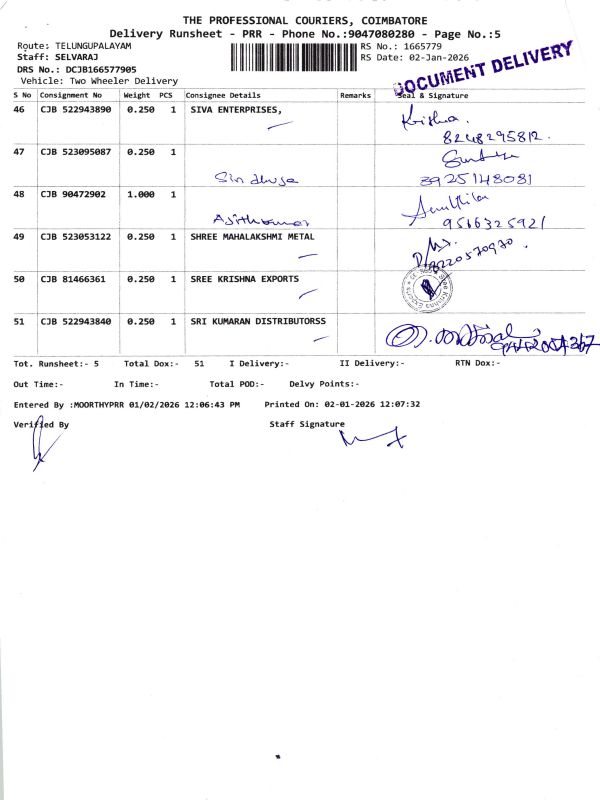 THE PROFESSIONAL COURIERS, COIMBATORE
Delivery Runsheet - PRR - Phone No.:9047080280 - Page No.:5
Route: TELUNGUPALAYAM
Staff: SELVARAJ
DRS No.: DCJB166577905
Vehicle: Two Wheeler Delivery
RS No.: 1665779
RS Date: 02-Jan-2026
DOCUMENT DELIVERY
S No Consignment No Weight PCS Consignee Details Remarks Seal & Signature
46 CJB 522943890 0.250 1 SIVA ENTERPRISES, Krishna.
8248295812.
47 CJB 523095087 0.250 1
Sindhuja 8925148081
48 CJB 90472902 1.000 1
Ajithkumar 9566325921
49 CJB 523053122 0.250 1 SHREE MAHALAKSHMI METAL
50 CJB 81466361 0.250 1 SREE KRISHNA EXPORTS
51 CJB 522943840 0.250 1 SRI KUMARAN DISTRIBUTORSS
Tot. Runsheet:- 5 Total Dox:- 51 I Delivery:- II Delivery:- RTN Dox:-
Out Time:- In Time:- Total POD:- Delvy Points:-
Entered By :MOORTHYPRR 01/02/2026 12:06:43 PM Printed On: 02-01-2026 12:07:32
Verified By Staff Signature